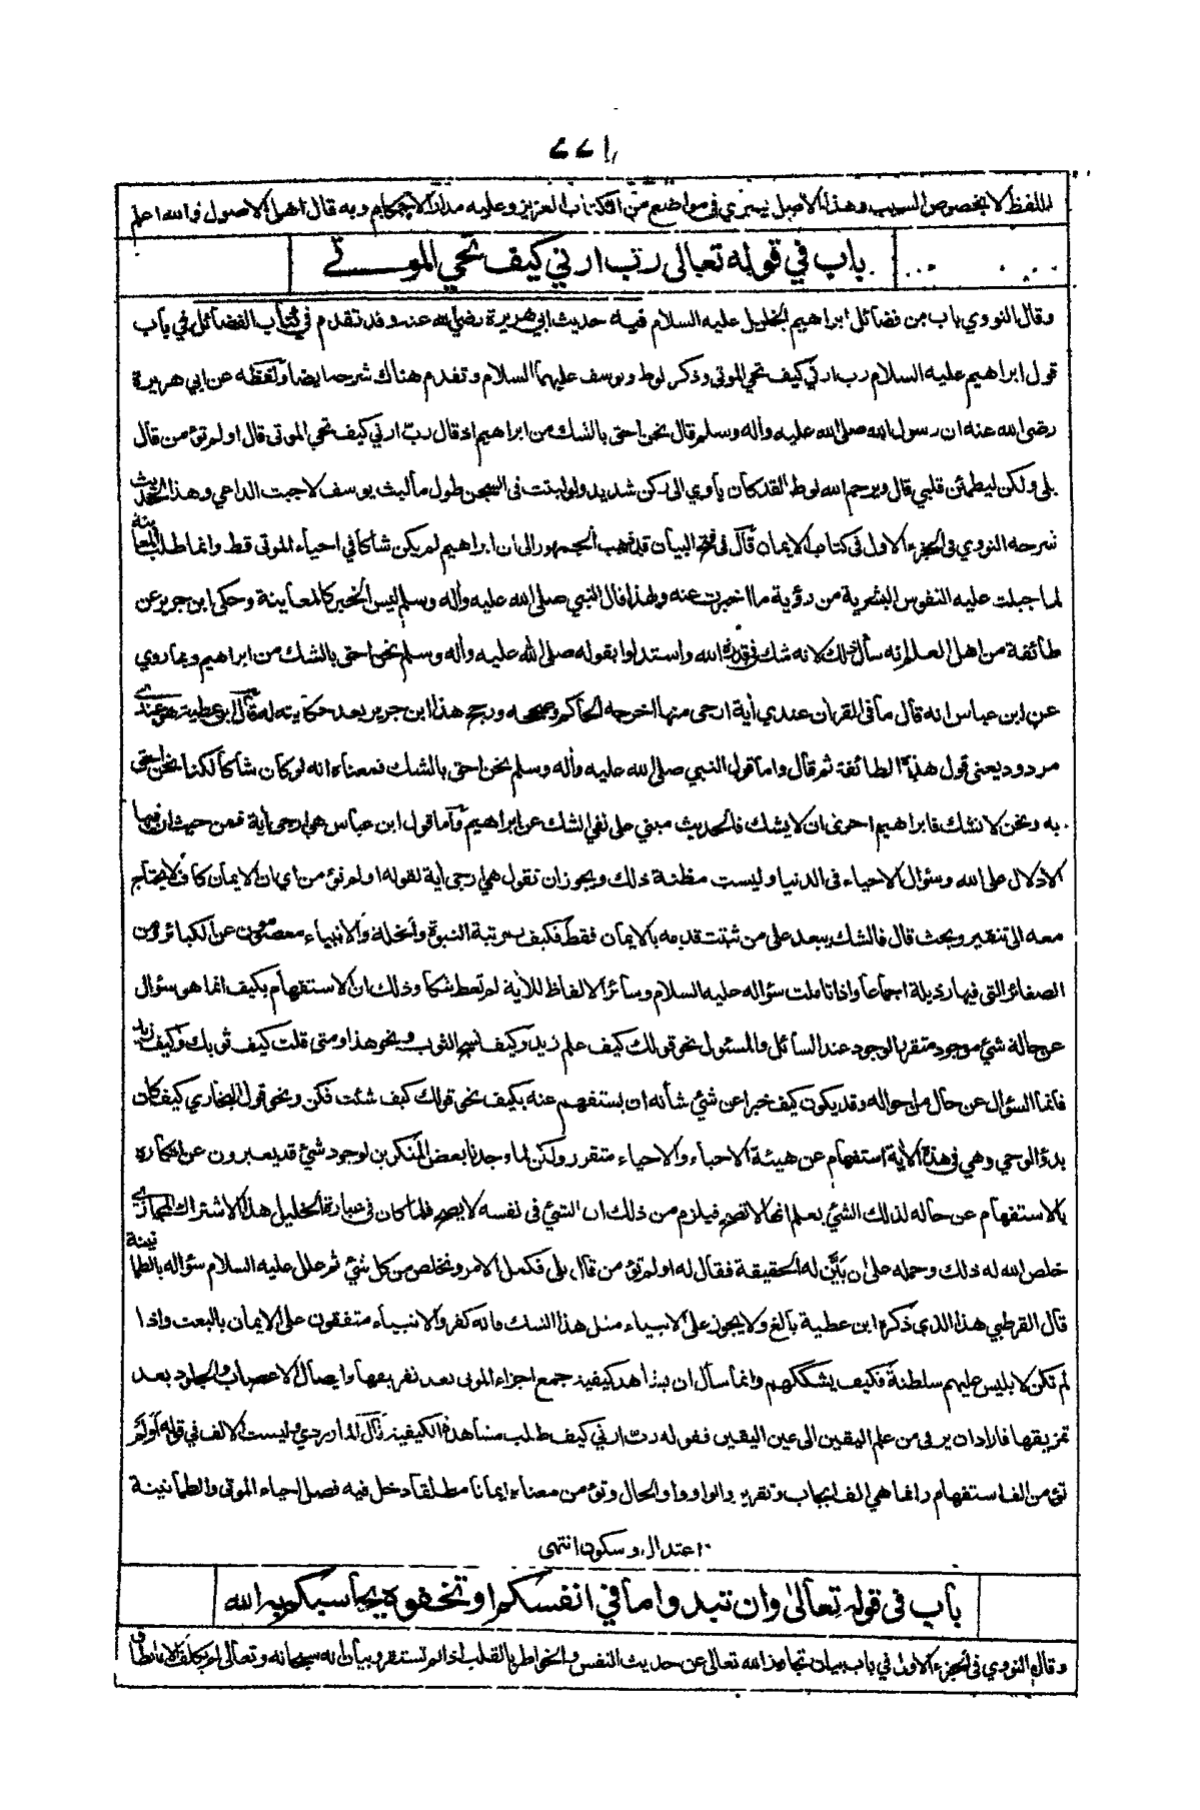 ٦٦١
اللفظ لا بخصوص السبب وهذا الاصل يسري في مواضع من الكتاب العزيز وعليه مدار الاحكام وبه قال اهل الاصول والله اعلم
باب في قوله تعالى رب ارني كيف تحي الموتى
وقال النووي باب من فضائل ابراهيم الخليل عليه السلام فيه حديث ابي هريرة رضي الله عنه وقد تقدم في كتاب الفضائل في باب
قول ابراهيم عليه السلام رب ارني كيف تحي الموتى وذكر لوط ويوسف عليهما السلام وتقدم هناك شرحه ايضا ولفظه عن ابي هريرة
رضي الله عنه ان رسول الله صلى الله عليه واله وسلم قال نحن احق بالشك من ابراهيم اذ قال رب ارني كيف تحي الموتى قال اولم تؤمن قال
بلى ولكن ليطمئن قلبي قال ويرحم الله لوطا لقد كان يأوي الى ركن شديد ولو لبثت في السجن طول ما لبث يوسف لاجبت الداعي وهذا الحديث
شرحه النووي في الجزء الاول في كتاب الايمان قال في فتح البيان قد ذهب الجمهور الى ان ابراهيم لم يكن شاكا في احياء الموتى قط وانما طلب المعاينة
لما جبلت عليه النفوس البشرية من رؤية ما اخبرت عنه ولهذا قال النبي صلى الله عليه واله وسلم ليس الخبر كالمعاينة وحكى ابن جرير عن
طائفة من اهل العلم انه سأل ذلك لانه شك في قدرة الله واستدلوا بقوله صلى الله عليه واله وسلم نحن احق بالشك من ابراهيم وبما روي
عن ابن عباس انه قال ما في القران عندي أية ارجى منها اخرجه الحاكم وصححه ورجح هذا ابن جرير بعد حكايته له قال ابن عطية هو عندي
مردود يعني قول هذه الطائفة ثم قال واما قول النبي صلى الله عليه واله وسلم نحن احق بالشك فمعناه انه لو كان شاكا لكنا نحن احق
به ونحن لا نشك فابراهيم احرى ان لا يشك فالحديث مبني على نفي الشك عن ابراهيم واما قول ابن عباس هي ارجى أية فمن حيث ان فيها
الادلال على الله وسؤال الاحياء في الدنيا وليست مظنة ذلك ويجوز ان نقول هي ارجى أية لقوله اولم تؤمن اي ان الايمان كاف لا يحتاج
معه الى تنقير وبحث قال فالشك يبعد على من ثبتت قدمه بالايمان فقط فكيف بمرتبة النبوة والخلة والانبياء معصومون عن الكبائر ومن
الصغائر التي فيها رذيلة اجماعا واذا تاملت سؤاله عليه السلام وسائر الالفاظ للأية لم تعط شكا وذلك ان الاستفهام بكيف انما هو سؤال
عن حالة شيء موجود متقرر الوجود عند السائل والمسئول نحو قولك كيف علم زيد وكيف نسج الثوب ونحو هذا ومتى قلت كيف ثوبك وكيف زيد
فانما السؤال عن حال من احواله وقد يكون كيف خبرا عن شيء شأنه ان يستفهم عنه بكيف نحو قولك كيف شئت فكن ونحو قول البخاري كيف كان
بدؤ الوحي وهي في هذه الأية استفهام عن هيئة الاحياء والاحياء متقرر ولكن لما وجدنا بعض المنكرين لوجود شيء قد يعبرون عن انكاره
بالاستفهام عن حاله لذلك الشيء يعلم انها لا تصح فيلزم من ذلك ان الشيء في نفسه لا يصح فلما كان في عبارة الخليل هذا الاشتراك المجازي
خلص الله له ذلك وحمله على ان بين له الحقيقة فقال له اولم تؤمن قال بلى فكمل الامر وتخلص من كل شيء ثم علل عليه السلام سؤاله بالطمانينة
قال القرطبي هذا الذي ذكره ابن عطية بالغ ولا يجوز على الانبياء مثل هذا الشك فانه كفر والانبياء متفقون على الايمان بالبعث واذا
لم تكن لابليس عليهم سلطنة فكيف يشككهم وانما سأل ان يشاهد كيفية جمع اجزاء الموتى بعد تفريقها وايصال الاعصاب والجلود بعد
تمزيقها فاراد ان يرقى من علم اليقين الى عين اليقين فقوله رب ارني كيف طلب مشاهدة الكيفية قال الماوردي وليست الالف في قوله اولم
تؤمن الف استفهام وانما هي الف ايجاب وتقرير والواو واو الحال وتؤمن معناه ايمانا مطلقا دخل فيه فصل احياء الموتى والطمأنينة
اعتدال وسكون انتهى
باب في قوله تعالى وان تبدوا ما في انفسكم او تخفوه يحاسبكم به الله
وقال النووي في الجزء الاول في باب بيان تجاوز الله تعالى عن حديث النفس والخواطر بالقلب اذا لم تستقر وبيان انه سبحانه وتعالى لم يكلف الا ما يطاق